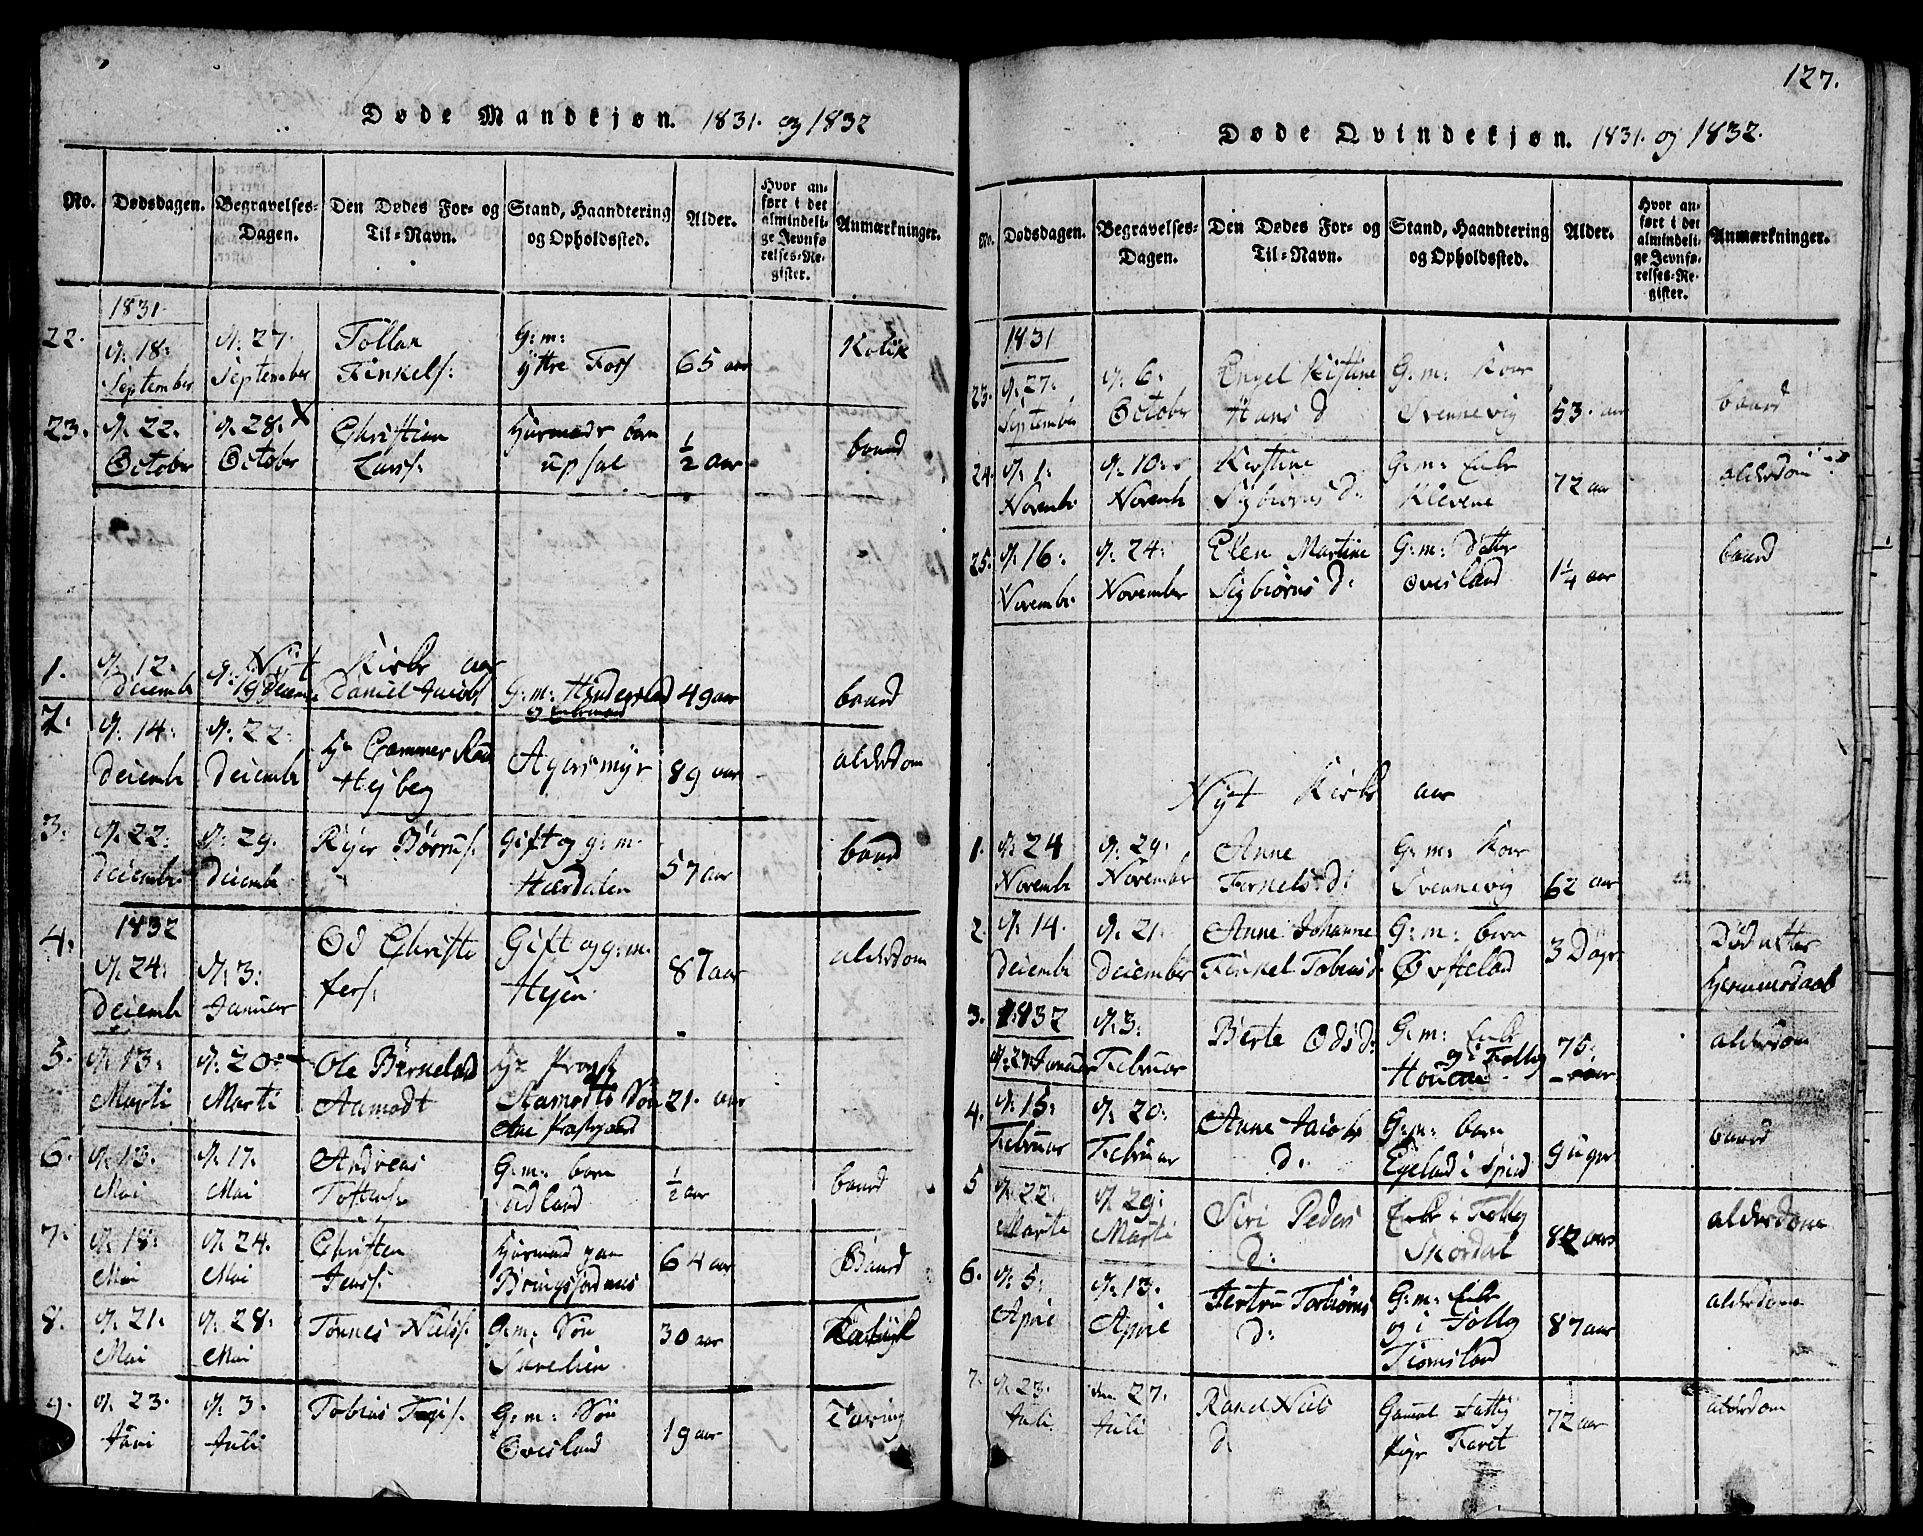 Døde Mandkjøn. 1831. og 1832
No. Dødsdagen. Begravelses-Dagen. Den Dødes For- og Til-Navn. Stand, Haandtering og Opholdssted. Alder. Hvor anført i det almindelige Jevnførelses-Register. Anmærkninger.
1831.
22. d. 18: September d. 27. September Tollak Finkels: G: m: yttre Fors 65 aar Kolik
23. d. 22. October d. 28. X October Christian Lars: Huusmads barn upsal ½ aar baard
Nyt Kirke aar
1. d. 12: Decemb d: 19 Decemb Daniel Jacobs G: m: Hindersland 49 aar baard
2. d. 14: Decemb d. 22: Decemb Hr Cammer Raad Hejberg Agersmyr 89 aar alderdom
3. d. 22: Decemb d. 29. Decemb Rejer Børrus: Gift og g: m. Hærdalen 57 aar baard
1832
4. d. 24: Decemb d. 3: Januar Od Christofers: Gift og g: m. Hejen 87 aar alderdom
5. d. 13: Marti d. 20: Marti Ole Berneland Aamodt Hr Provst Aamodts Søn 21. aar
6. d. 13. Mai d. 17. Mai Andreas Tostens: G: m: barn udland ½ aar baard
7. d. 18: Mai d. 24. Mai Christen Jens: Huusmand paa Bringsfordnes 64 aar Baard
8. d. 21. Mai d. 28. Mai Tønnes Niels: G: m: Søn 30 aar
9. d. 23. Juni d. 3. Juli Tobias G: m: Søn Ovesland 19 aar Tæring
127.
Døde Qvindekjøn. 1831. og 1832.
No. Dødsdagen. Begravelses-Dagen. Den Dødes For- og Til-Navn. Stand, Haandtering og Opholdssted. Alder. Hvor anført i det almindelige Jevnførelses-Register. Anmærkninger.
1831
23. d. 27. September d. 6. October Engel Kistine Hans d G: m: Kone Svennevig 53. aar baard
24. d. 1. Novemb. d. 10. Novemb Kirstine Sigbiørns d: G: m: Enke Klevene 72 aar alderdom
25. d. 16: Novemb. d. 24: November Elen Martine Sigbiørns d: G: m: datter ovesland 1¼ aar baard
Nyt Kirke aar
1. d. 24 Novemb d. 29. November Anne Finkels d: G: m: Kone Svennevig 62 aar
2. d. 14. Decemb d. 21. December Anne Johanne Finkel Tobias d. G: m: barn Øvsteland 3 Dage Død efter hjemmedaab
3. 1832 d. 27 Januar d. 3. Februar Berte Ods d: G: m: Enke og i Fattig Houene 75: aar alderdom
4. d. 15: Februar d. 20: Februar Anne Jacobs d: G: m: barn Egeland i Spind 9 uger baard
5 d. 22. Marti d. 29: Marti Siri Peders d: Enke i Fattig Skordal 82 aar alderdom
6. d. 5: April d. 13. April Jertru Torbiørns d: G: m: Enke og i Fattig Tiomsland 87 aar alderdom
7. d. 23. Juli. den 27. Juli Ranel Niels d Gammel Fattig Pige Faret 72 aar alderdom